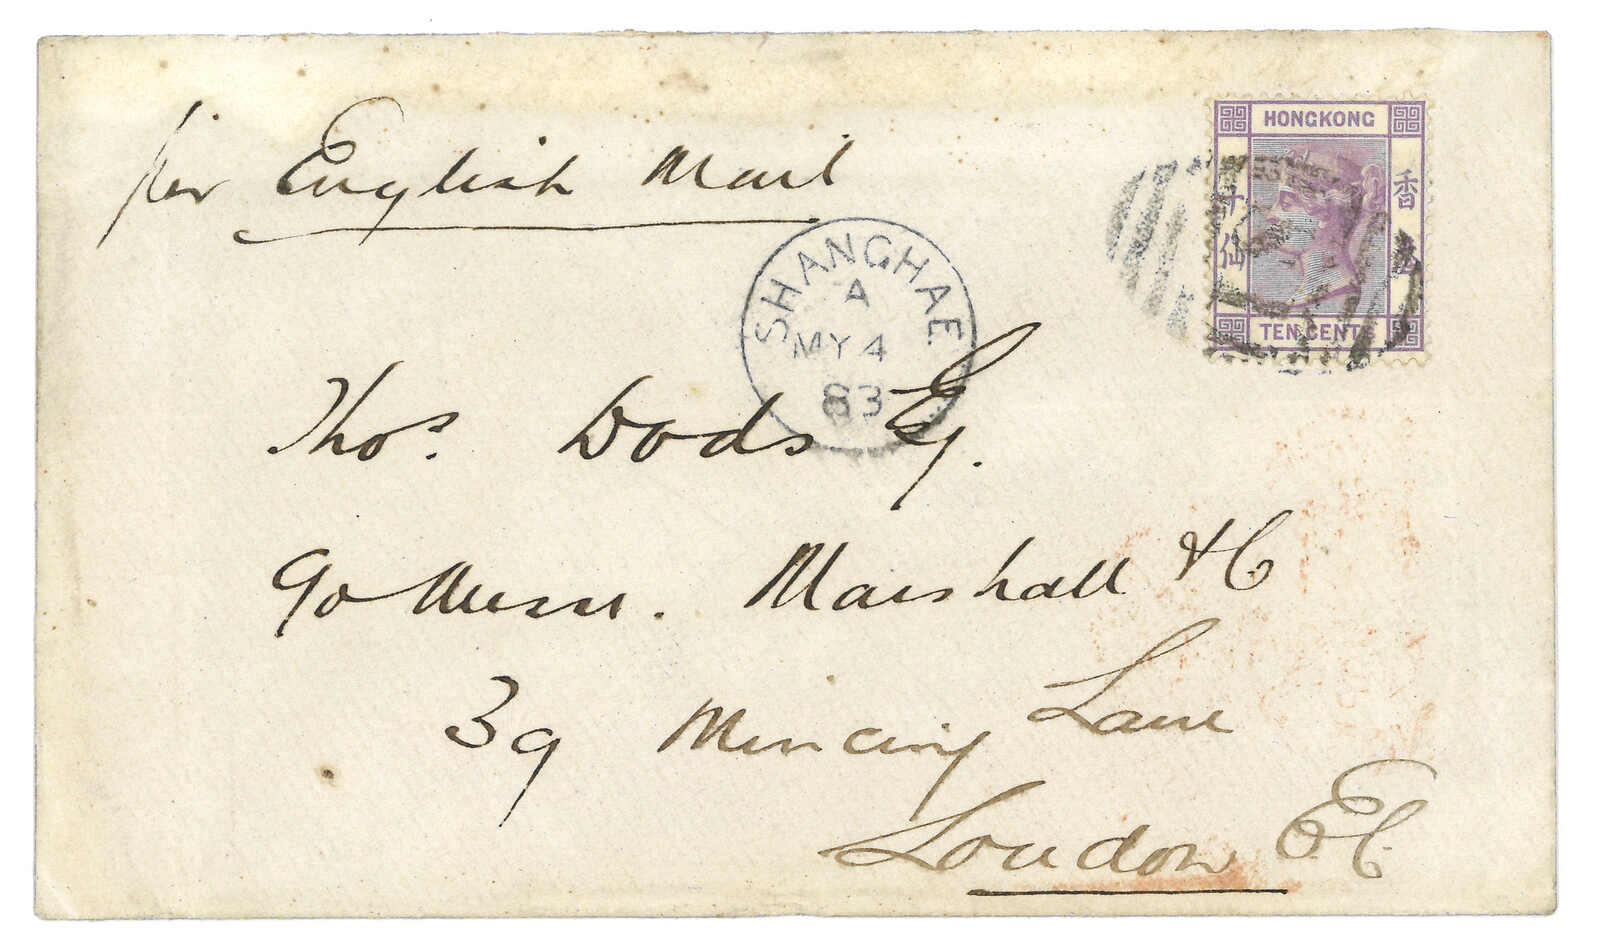 per English Mail
HONGKONG
香
仙
TEN CENTS
SHANGHAE
A
MY 4
83
Thos. Dods Esq.
c/o Messrs. Marshall & Co
39 Mincing Lane
London E.C.